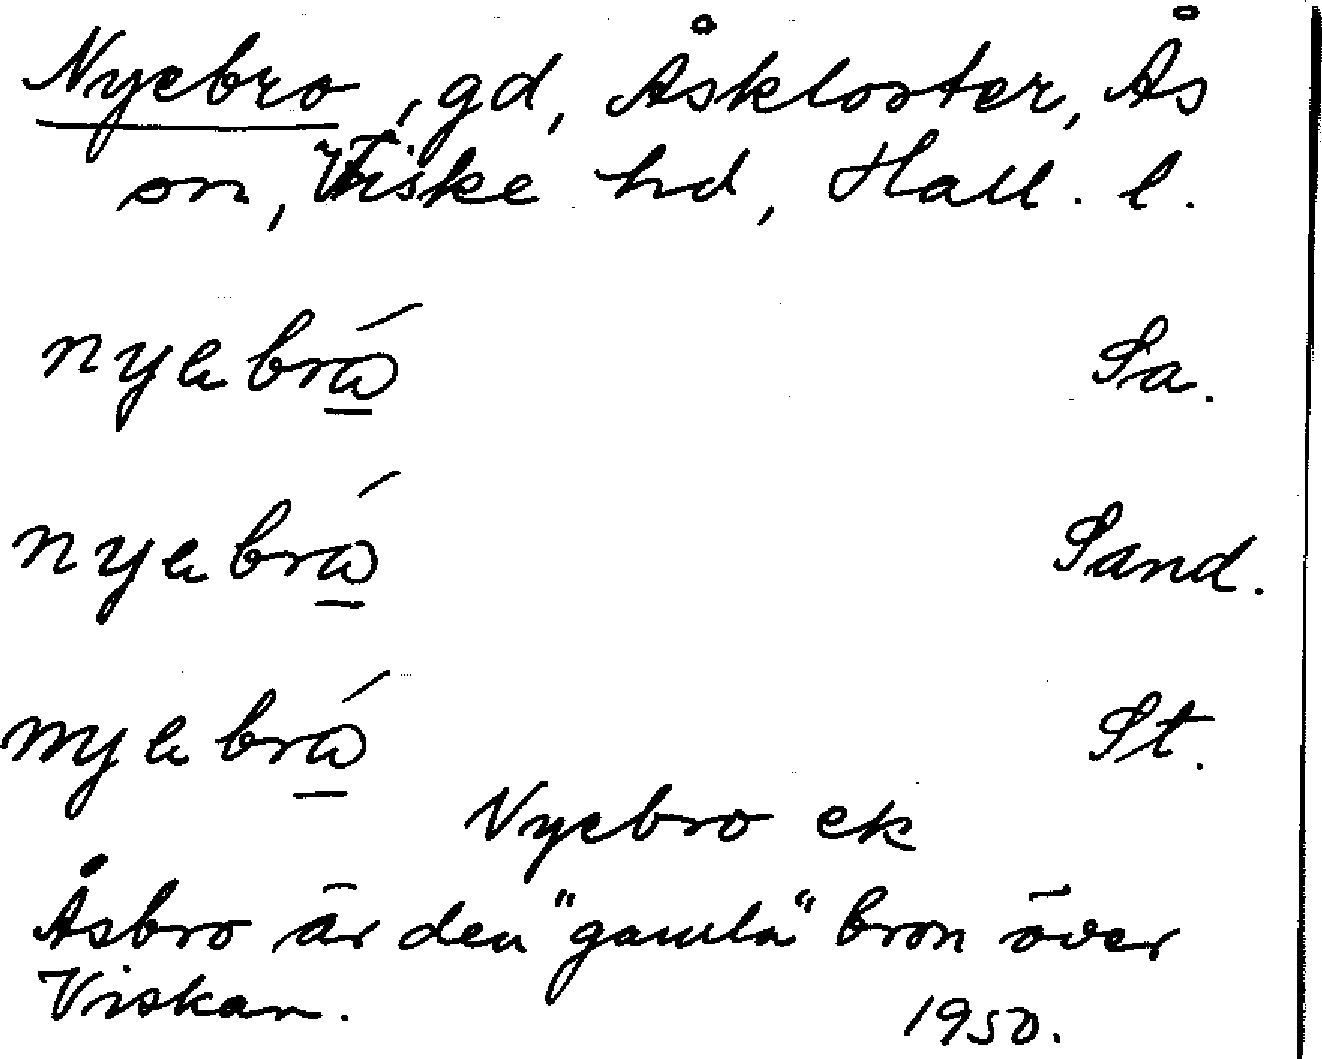 Nyebro, gd, Åskloster, Ås
sn, Viske hd, Hall. l.
nyabrǻ Sa.
nyabrǻ Sand.
nyabrǻ St.
Nyebro ek
Åsbro är den "gamla" bron över
Viskan. 1950.